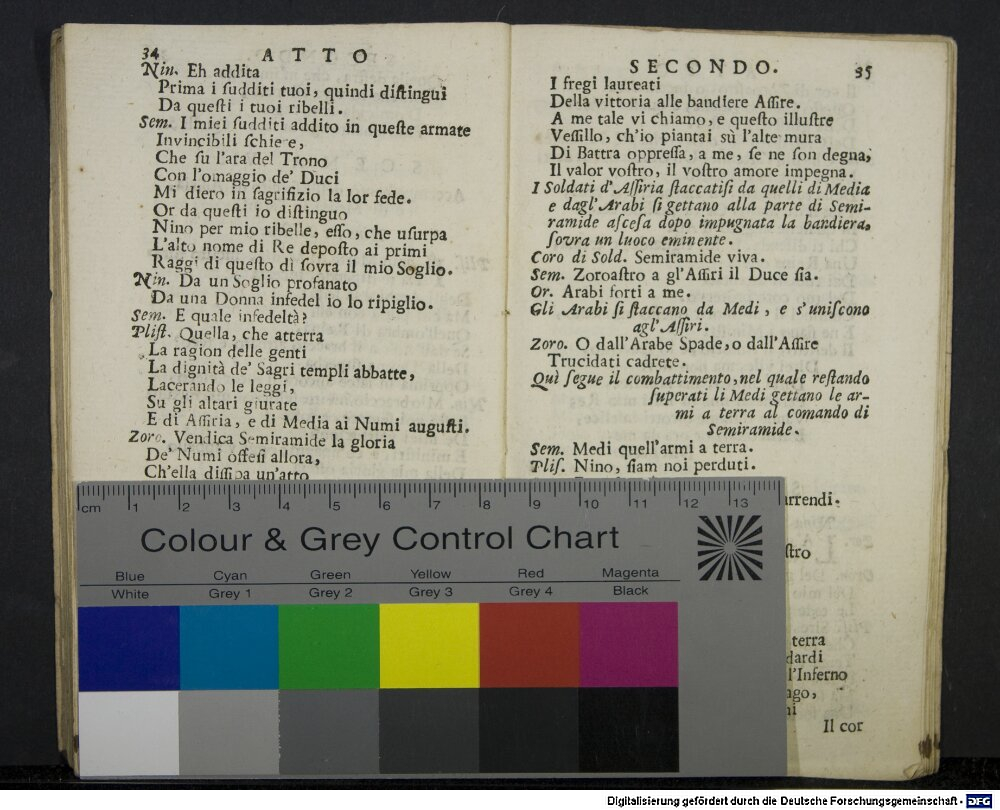 34 ATTO
Nin. Eh addita
Prima i ſudditi tuoi, quindi diſtingui
Da queſti i tuoi ribelli.
Sem. I miei ſudditi addito in queſte armate
Invincibili ſchiere,
Che ſu l'ara del Trono
Con l'omaggio de' Duci
Mi diero in ſagrifizio la lor fede.
Or da queſti io diſtinguo
Nino per mio ribelle, eſſo, che uſurpa
L'alto nome di Re depoſto ai primi
Raggi di queſto dì ſovra il mio Soglio.
Nin. Da un Soglio profanato
Da una Donna infedel io lo ripiglio.
Sem. E quale infedeltà?
Pliſt. Quella, che atterra
La ragion delle genti
La dignità de' Sagri templi abbatte,
Lacerando le leggi,
Su gli altari giurate
E di Aſſiria, e di Media ai Numi auguſti.
Zoro. Vendica Semiramide la gloria
De' Numi offeſi allora,
Ch'ella diſſipa un'atto
SECONDO. 35
I fregi laureati
Della vittoria alle bandiere Aſſire.
A me tale vi chiamo, e queſto illuſtre
Veſſillo, ch'io piantai sù l'alte mura
Di Battra oppreſſa, a me, ſe ne ſon degna,
Il valor voſtro, il voſtro amore impegna.
I Soldati d'Aſſiria ſtaccatiſi da quelli di Media
e dagl'Arabi ſi gettano alla parte di Semi-
ramide aſceſa dopo impugnata la bandiera,
ſovra un luoco eminente.
Coro di Sold. Semiramide viva.
Sem. Zoroaſtro a gl'Aſſiri il Duce ſia.
Or. Arabi forti a me.
Gli Arabi ſi ſtaccano da Medi, e s'uniſcono
agl'Aſſiri.
Zoro. O dall'Arabe Spade, o dall'Aſſire
Trucidati cadrete.
Quì ſegue il combattimento, nel quale reſtando
ſuperati li Medi gettano le ar-
mi a terra al comando di
Semiramide.
Sem. Medi quell'armi a terra.
Pliſ. Nino, ſiam noi perduti.
arrendi.
ſtro
terra
dardi
l'Inferno
ago,
ni
Il cor
cm 1 2 3 4 5 6 7 8 9 10 11 12 13
Colour & Grey Control Chart
Blue Cyan Green Yellow Red Magenta
White Grey 1 Grey 2 Grey 3 Grey 4 Black
Digitalisierung gefördert durch die Deutsche Forschungsgemeinschaft - DFG